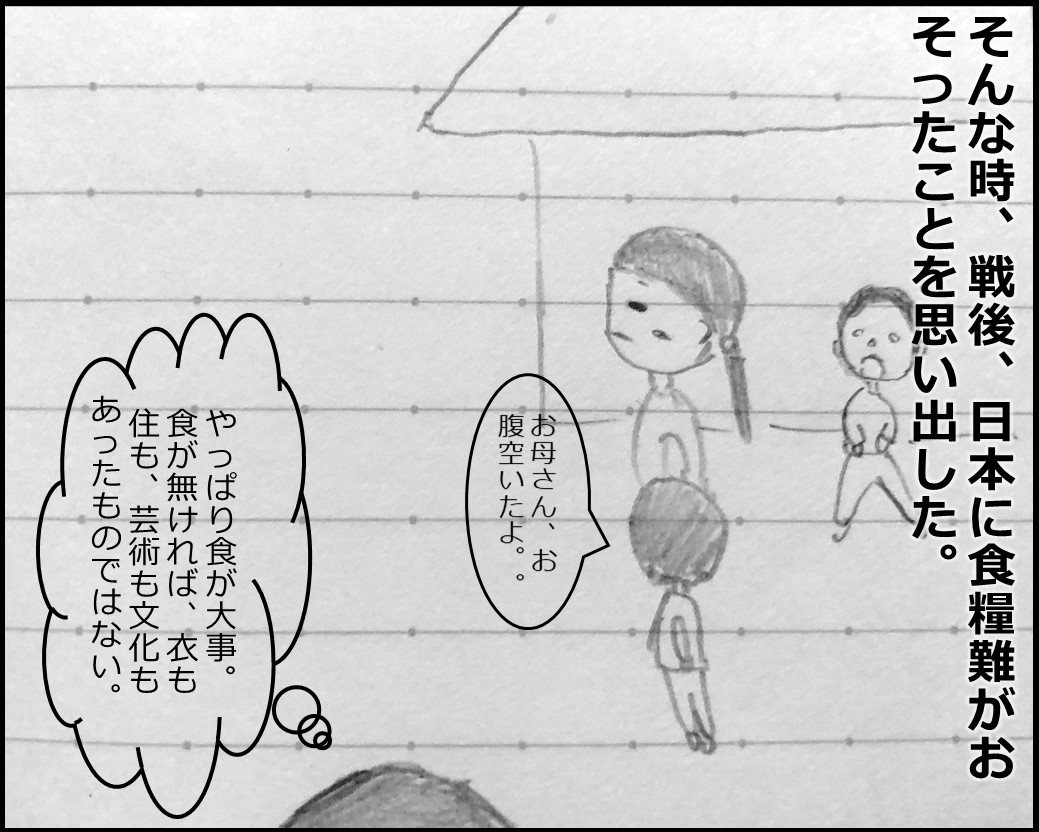 そんな時、戦後、日本に食糧難がお
そつたことを思い出した。
お母さん、お
腹空いたよ。。
やっぱり食が大事。
食が無ければ、衣も
住も、芸術も文化も
あったものではない。